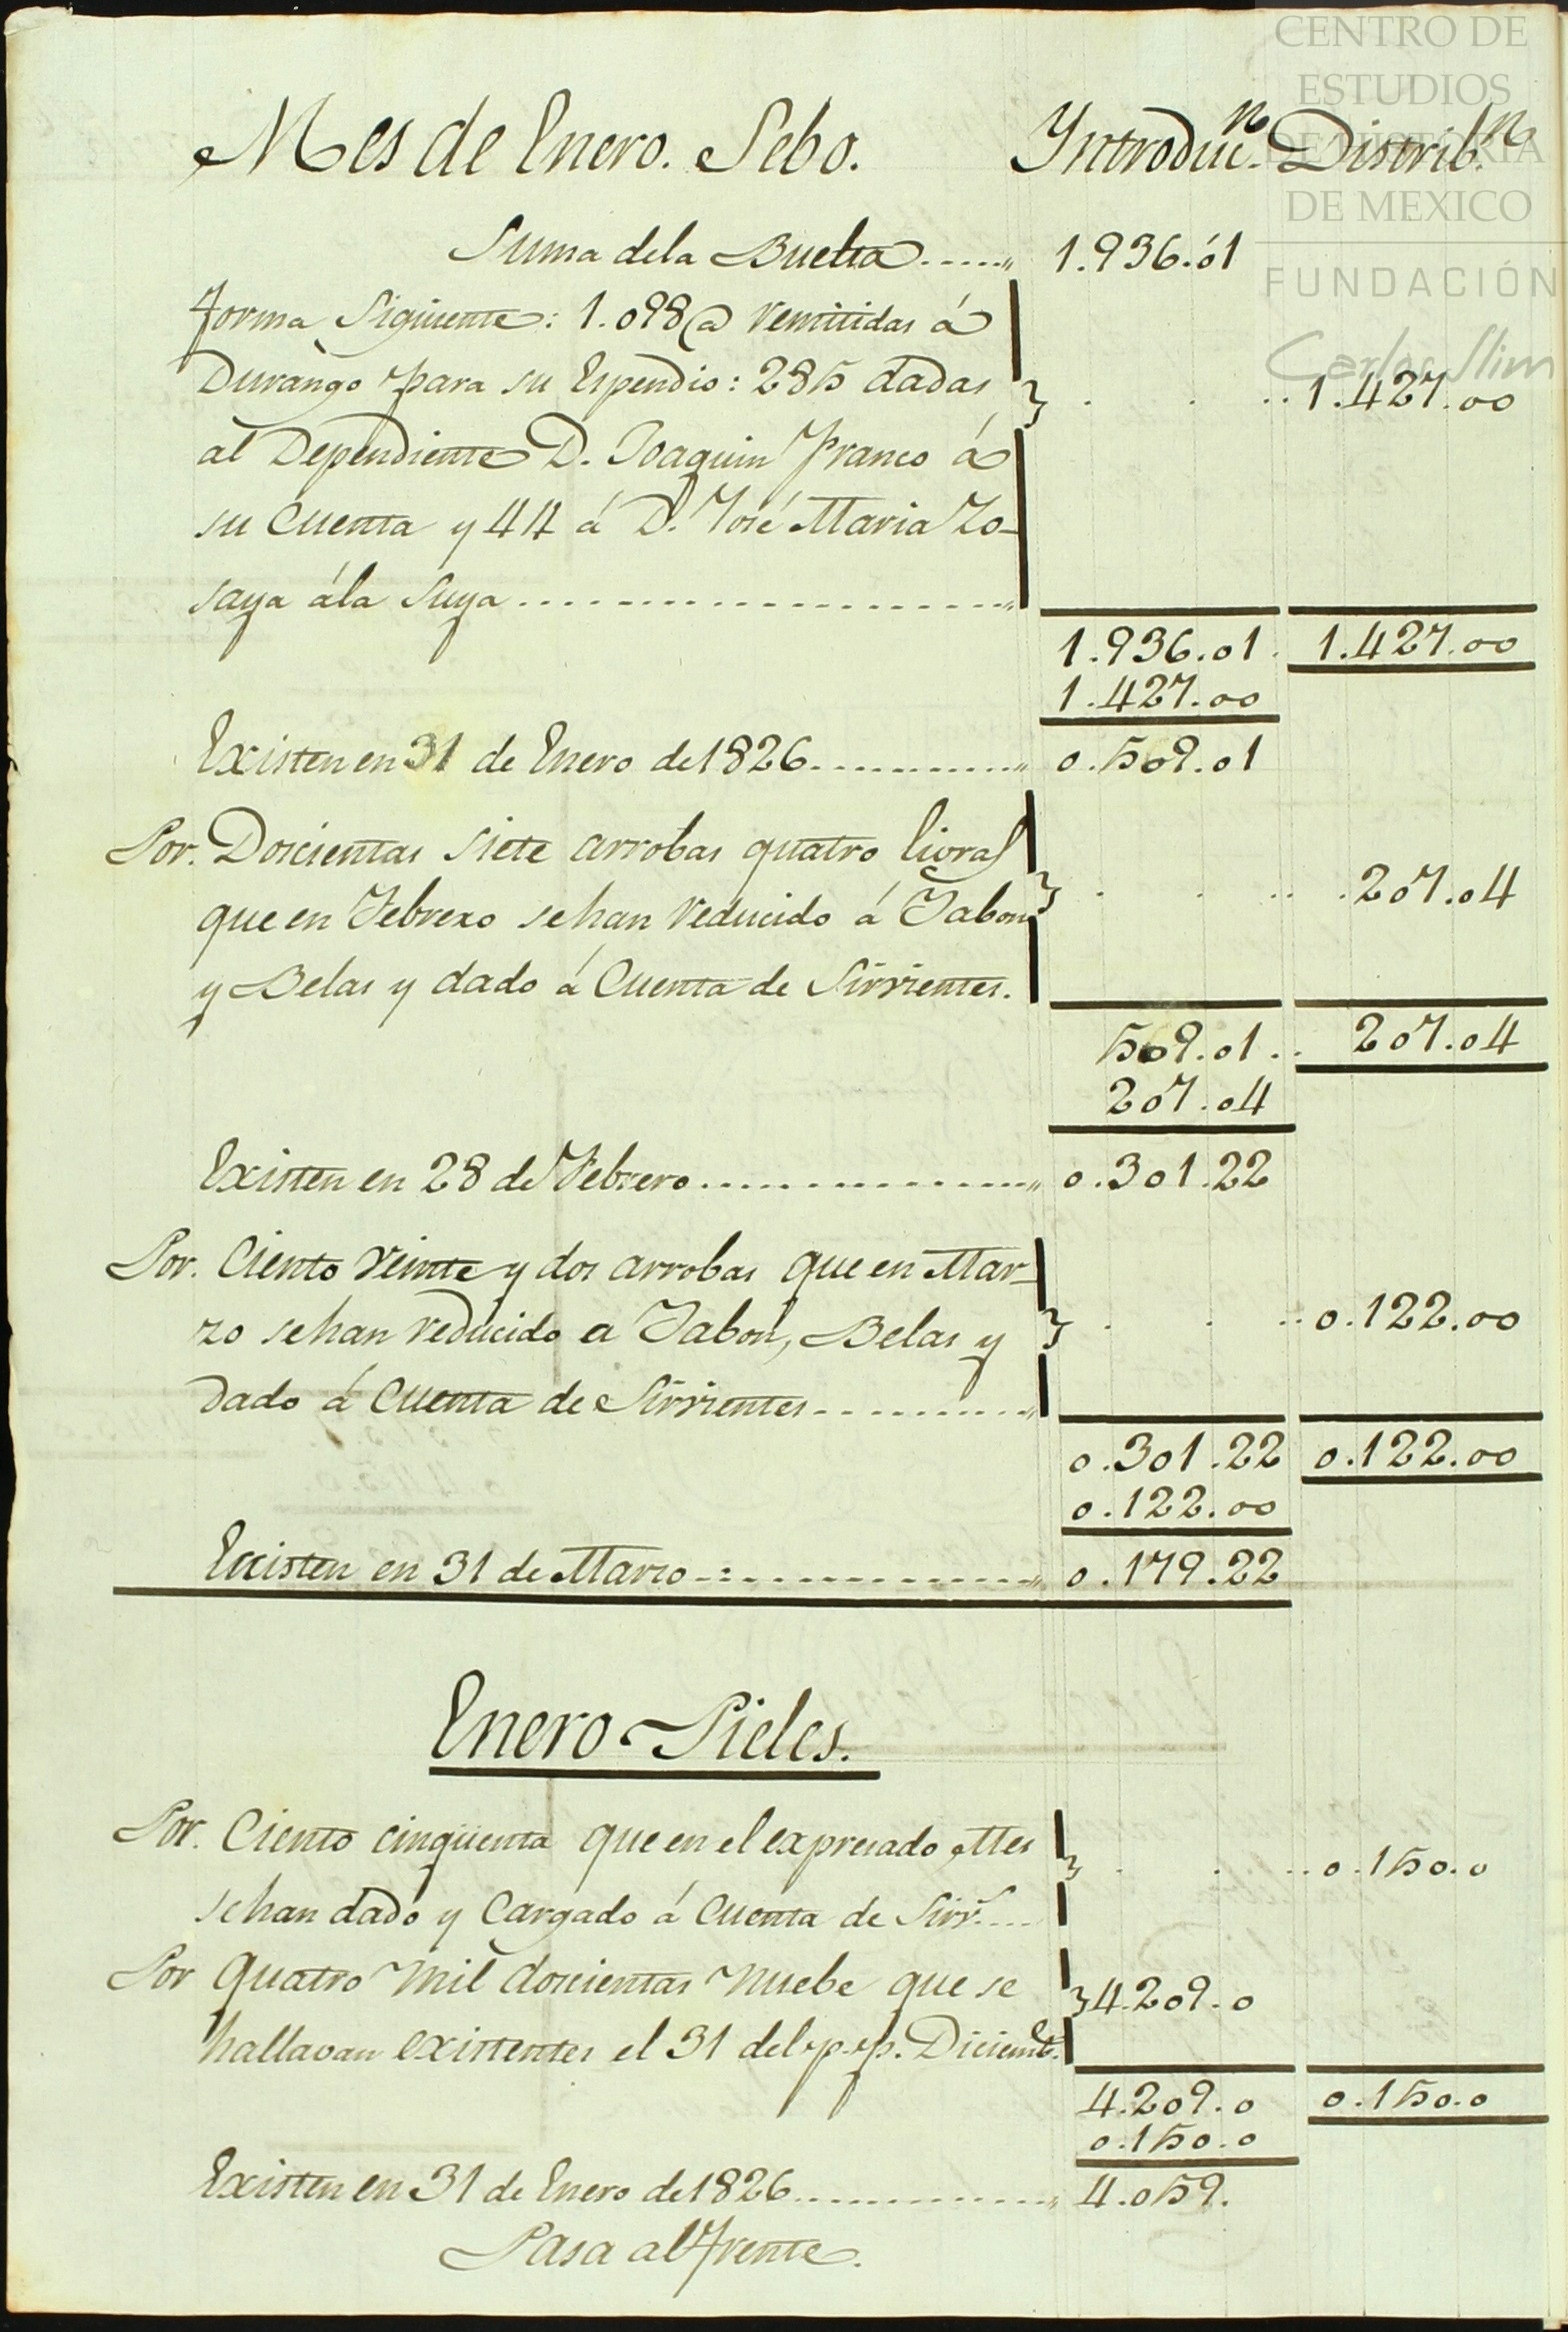 CENTRO DE
ESTUDIOS
DE HISTORIA
DE MEXICO
FUNDACIÓN
Carlos Slim
Mes de Enero. Sebo. Introduc.n Distrib.n
Suma dela Buelta......,, 1.936.01
forma Sigüiente: 1.098@ remitidas á
Durango para su Espendio: 285 dadas
al Dependiente D. Joaquin Franco á . . .. 1.427.00
su Cuenta y 44 á D. José Maria Zo-
saya ála suya......................,,
1.936.01. 1.427.00
1.427.00
Existen en 31 de Enero de 1826.............,, 0.509.01
Por. Doscientas siete arrobas quatro livras
que en Febrero se han reducido á Jabon . . .. .207.04
y Belas y dado á Cuenta de Sirvientes.
509.01.. 207.04
207.04
Existen en 28 de Febrero...................,, 0.301.22
Por. Ciento veinte y dos arrobas que en Mar-
zo se han reducido a Jabon, Belas y . . .. 0.122.00
dado á Cuenta de Sirvientes............,,
0.301.22 0.122.00
0.122.00
Existen en 31 de Marzo..................,, 0.179.22
Enero Pieles.
Por. Ciento cinqüenta que en el expresado Mes
se han dado y Cargado á Cuenta de Sirv.s.... . . .. 0.150.0
Por quatro mil doscientas nuebe que se
hallavan existentes el 31 del p.p. Diciemb.e 4.209.0
4.209.0 0.150.0
0.150.0
Existen en 31 de Enero de 1826..............,, 4.059.
Pasa al Frente.